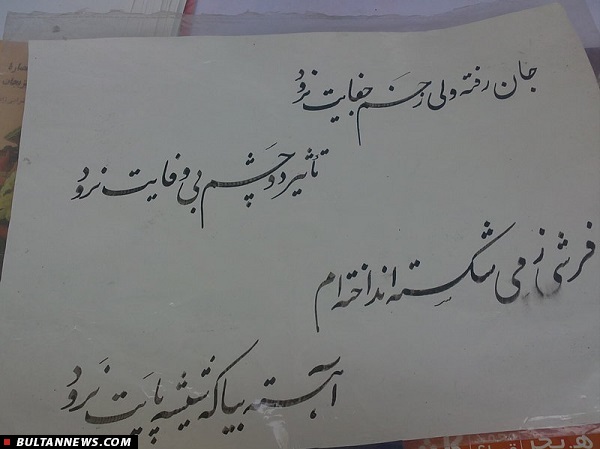 جان رفته ولی زخم جفایت نرود
تأثیر دو چشم بی وفایت نرود
فرشی ز می شکسته انداخته ام
آهسته بیا که شیشه پایت نرود
BULTANNEWS.COM